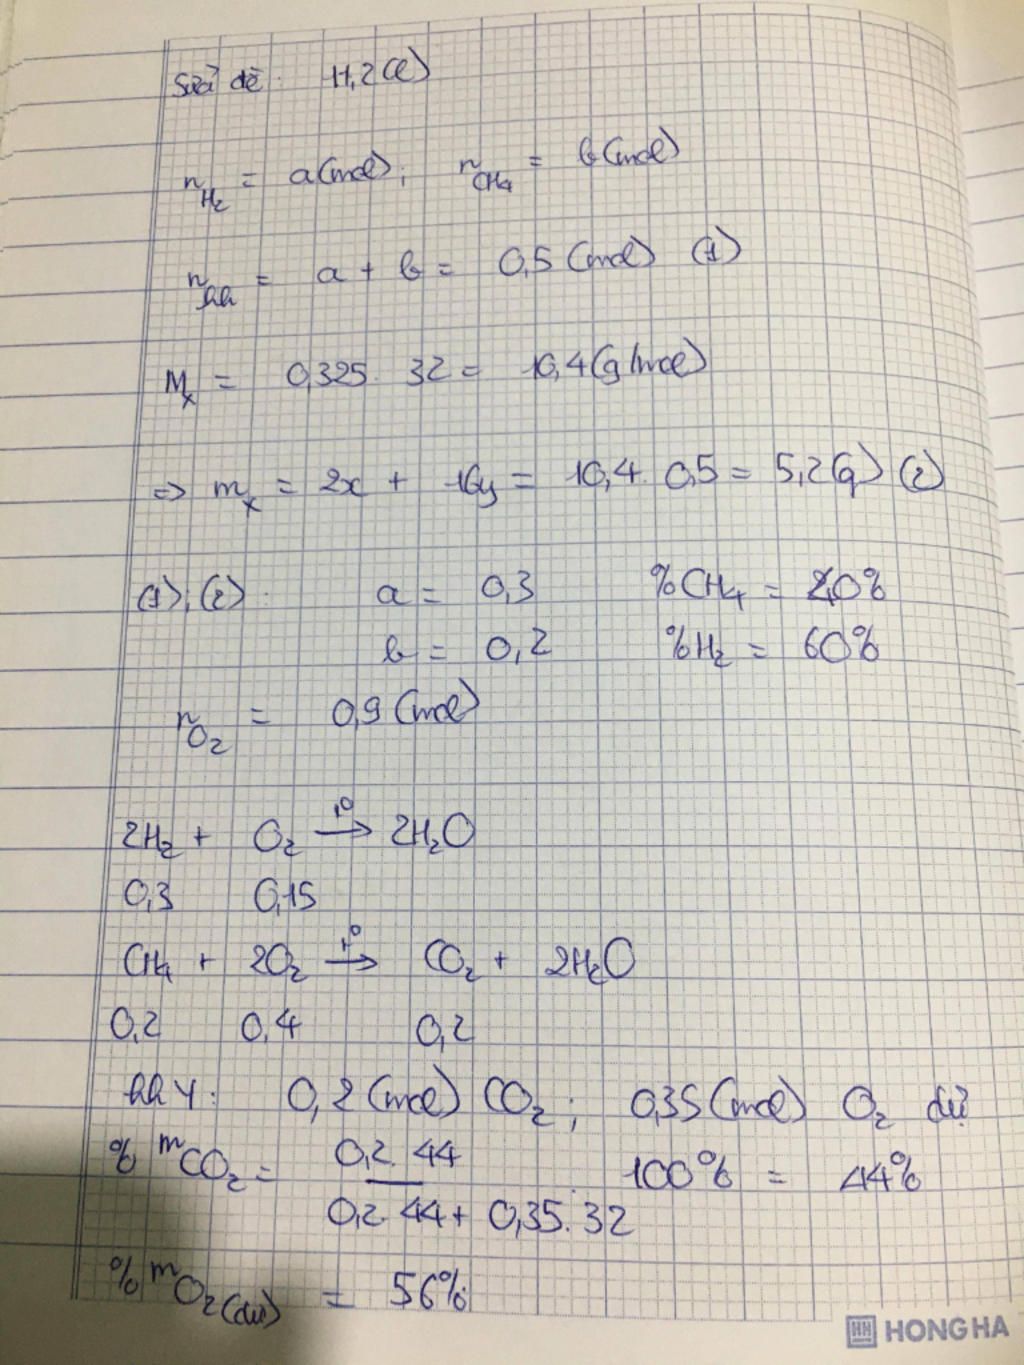 Sửa đề: 11,2(l)
nH₂ = a(mol); nCH₄ = b(mol)
nhh = a + b = 0,5(mol) (1)
Mx = 0,325. 32 = 10,4(g/mol)
=> mx = 2x + 16y = 10,4. 0,5 = 5,2(g) (2)
(1);(2): a = 0,3 %CH₄ = 40%
b = 0,2 %H₂ = 60%
nO₂ = 0,9(mol)
2H₂ + O₂ →t⁰ 2H₂O
0,3 0,15
CH₄ + 2O₂ →t⁰ CO₂ + 2H₂O
0,2 0,4 0,2
hh Y: 0,2(mol) CO₂; 0,35(mol) O₂ dư
% mCO₂ = 0,2. 44 / 0,2. 44 + 0,35. 32 . 100% = 44%
% mO₂(dư) = 56%
HH HONG HA